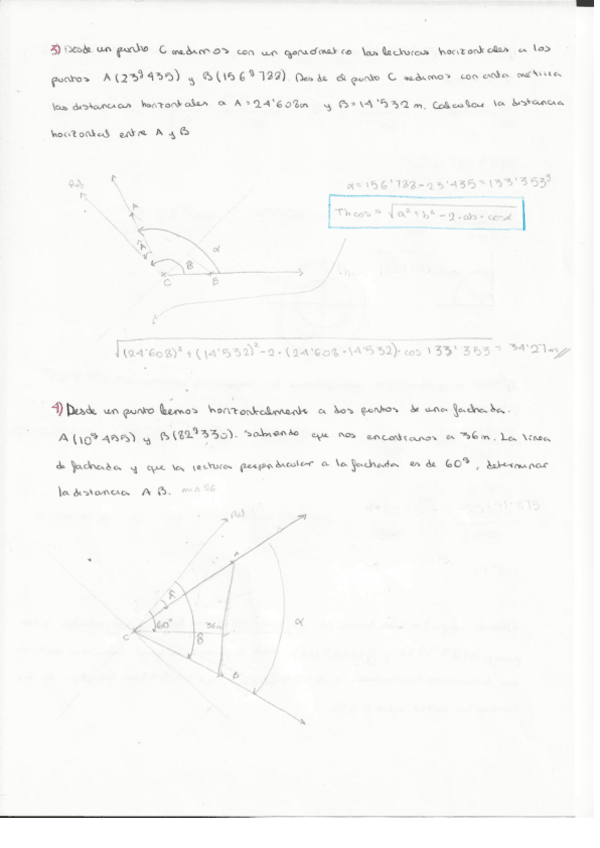 3) Desde un punto C medimos con un goniómetro las lecturas horizontales a los
puntos A (23ᵍ435) y B (156ᵍ788). Desde el punto C medimos con cinta métrica
las distancias horizontales a A = 24'608m y B = 14'532 m. Calcular la distancia
horizontal entre A y B
α = 156'788 - 23'435 = 133'353ᵍ
Th cos = √a² + b² - 2·ab·cosα
Ref
A
Â
α
B
C
B
√(24'608)² + (14'532)² - 2·(24'608·14'532)·cos 133'353 = 34'27m
4) Desde un punto leemos horizontalmente a dos puntos de una fachada.
A (10ᵍ495) y B (82ᵍ330). Sabiendo que nos encontramos a 36m. La línea
de fachada y que la lectura perpendicular a la fachada es de 60ᵍ, determinar
la distancia A B.
Ref
A
Â
60°
36m
α
C
B
B